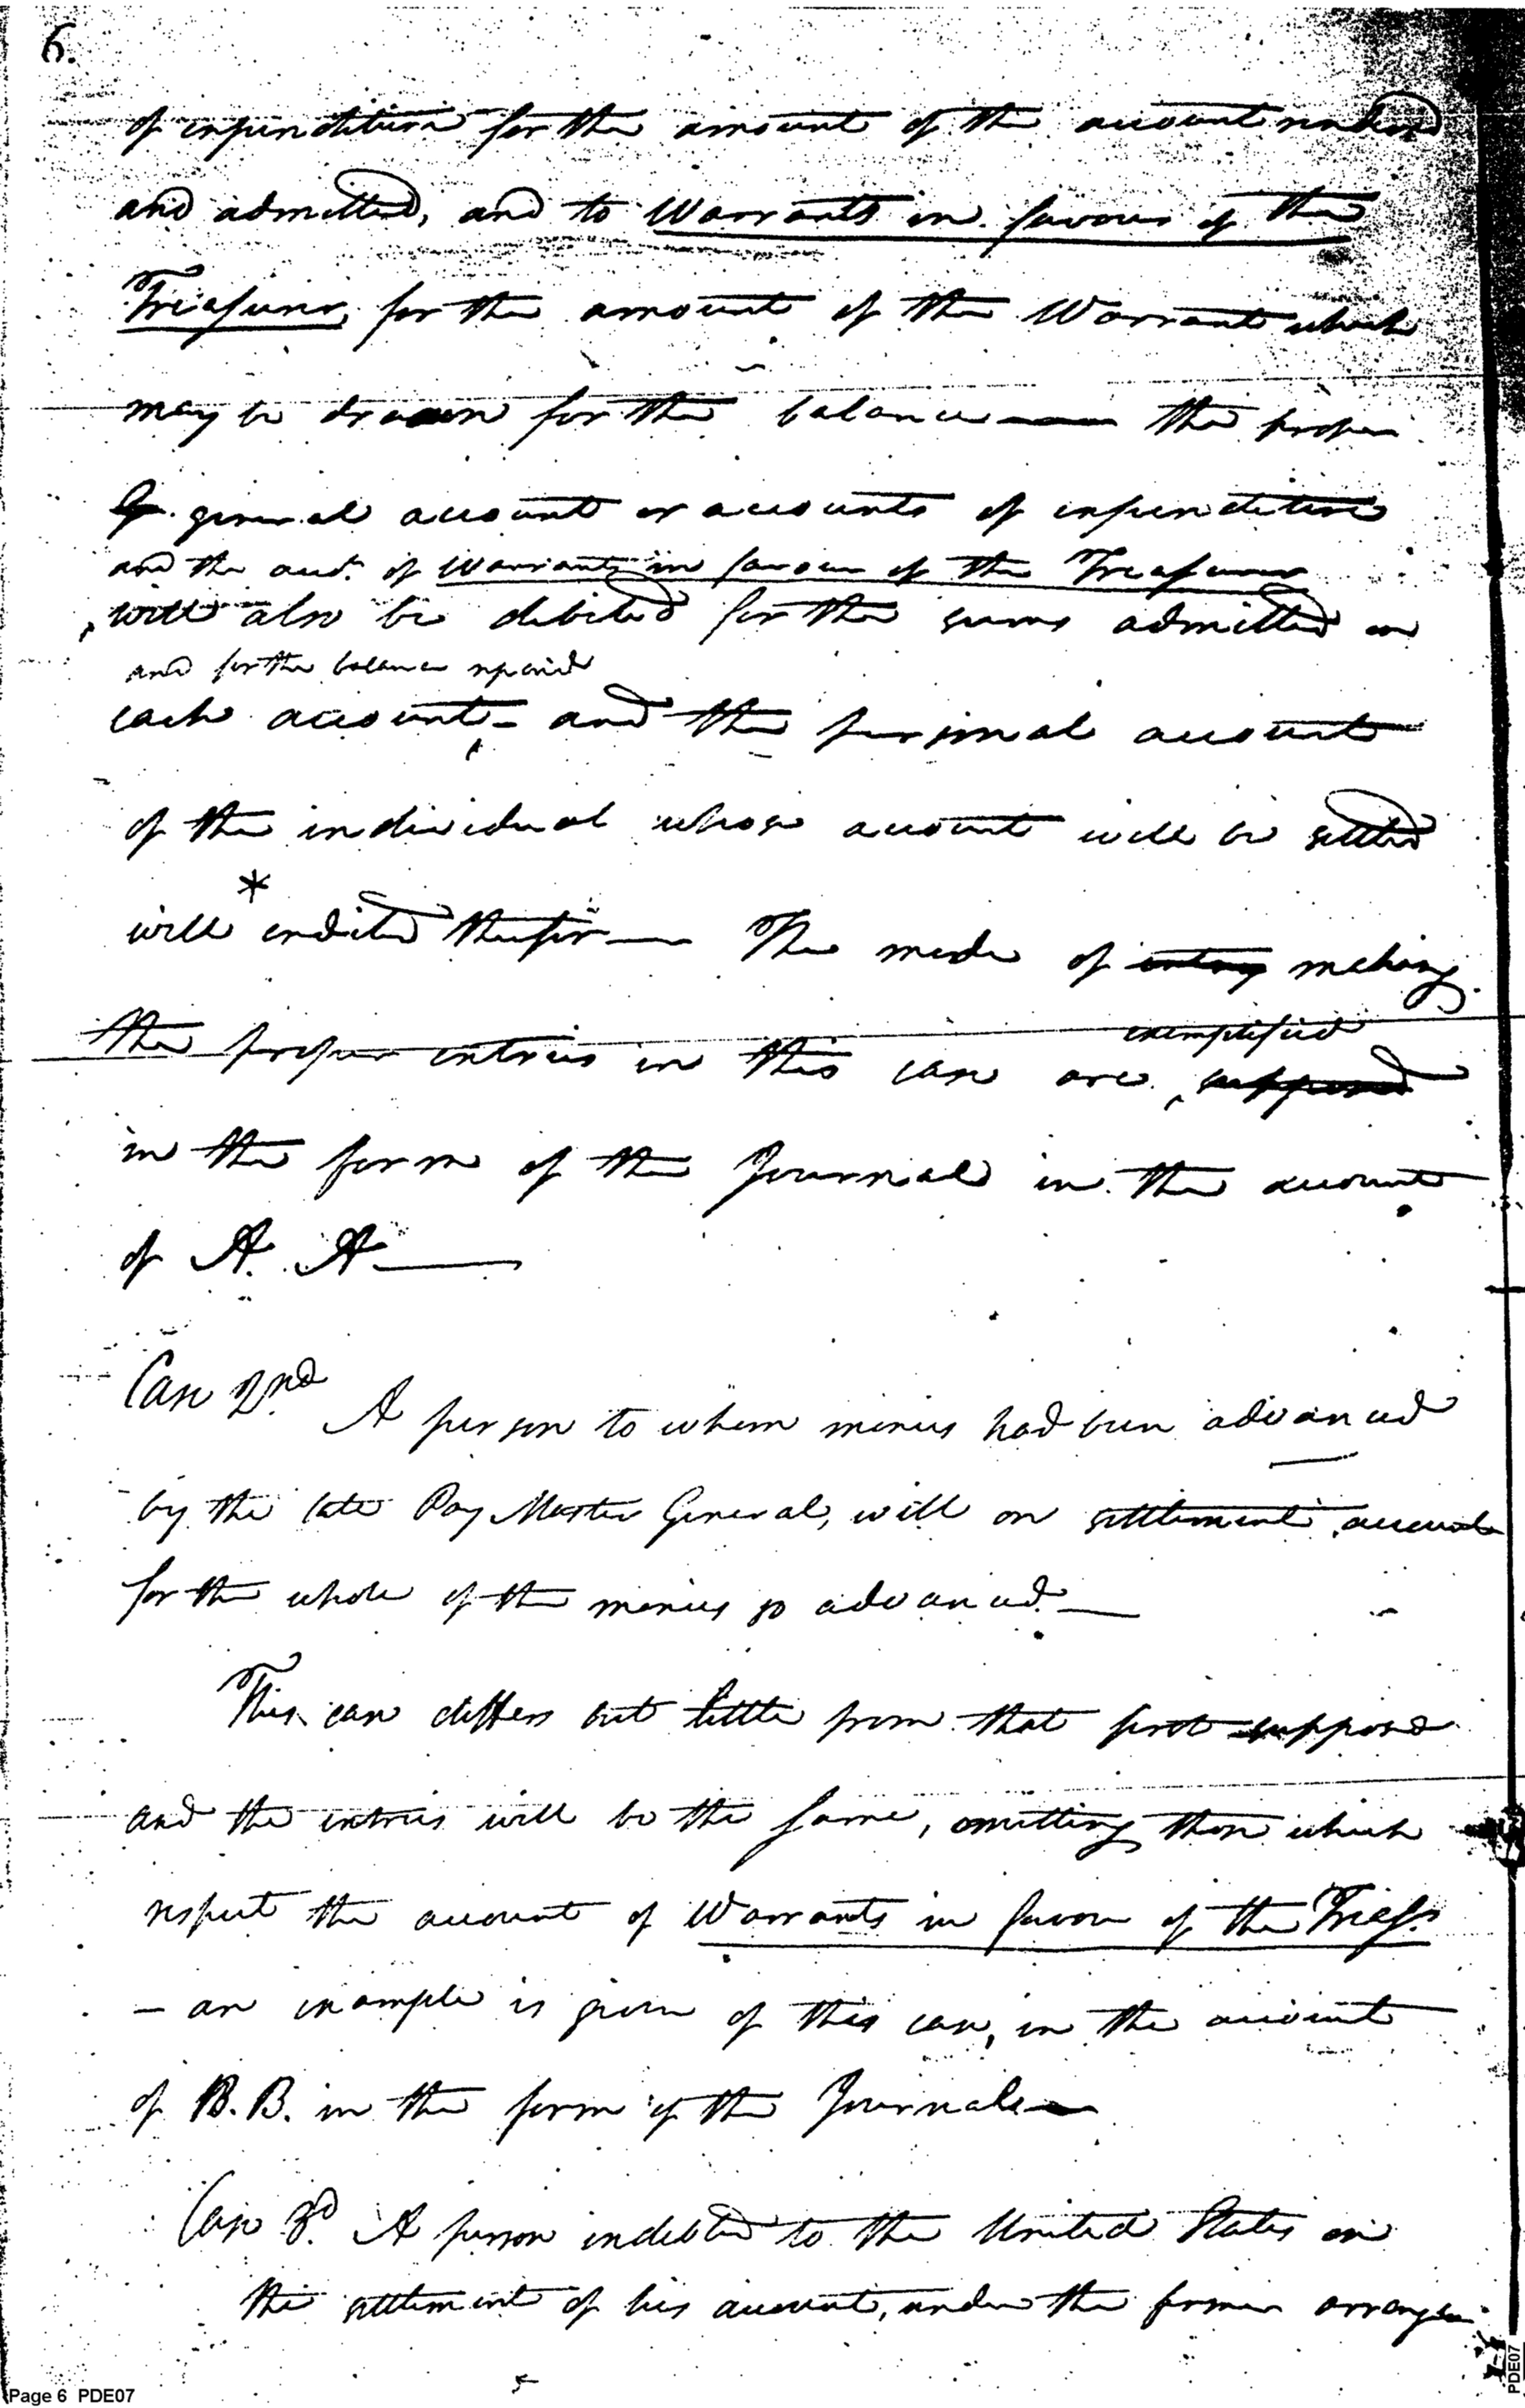 6.
of expenditure for the amount of the account rendered
and admitted, and to Warrants in favour of the
Treasurer, for the amount of the Warrant which
may be drawn for the balance — the proper
G. general account or accounts of expenditure
and the acct. of Warrants in favour of the Treasurer
will also be debited for the sums admitted on
and for the balance repaid
each account — and the personal account
of the individual whose account will be settled
*
will credited therefor — The mode of entry making
exemplified
the proper entries in this case are supposed
in the form of the Journal in the account
of A. A —
Case 2nd. A person to whom monies had been advanced
by the late Pay Master General, will on settlement account
for the whole of the monies so advanced. —
This case differs but little from that first suppose
and the entries will be the same, omitting those which
respect the account of Warrants in favour of the Treasr.
— an example is given of this case, in the account
of B. B. in the form of the Journal —
Case 3d. A person indebted to the United States on
the settlement of his account, under the former arrangem
Page 6 PDE07
PDE07